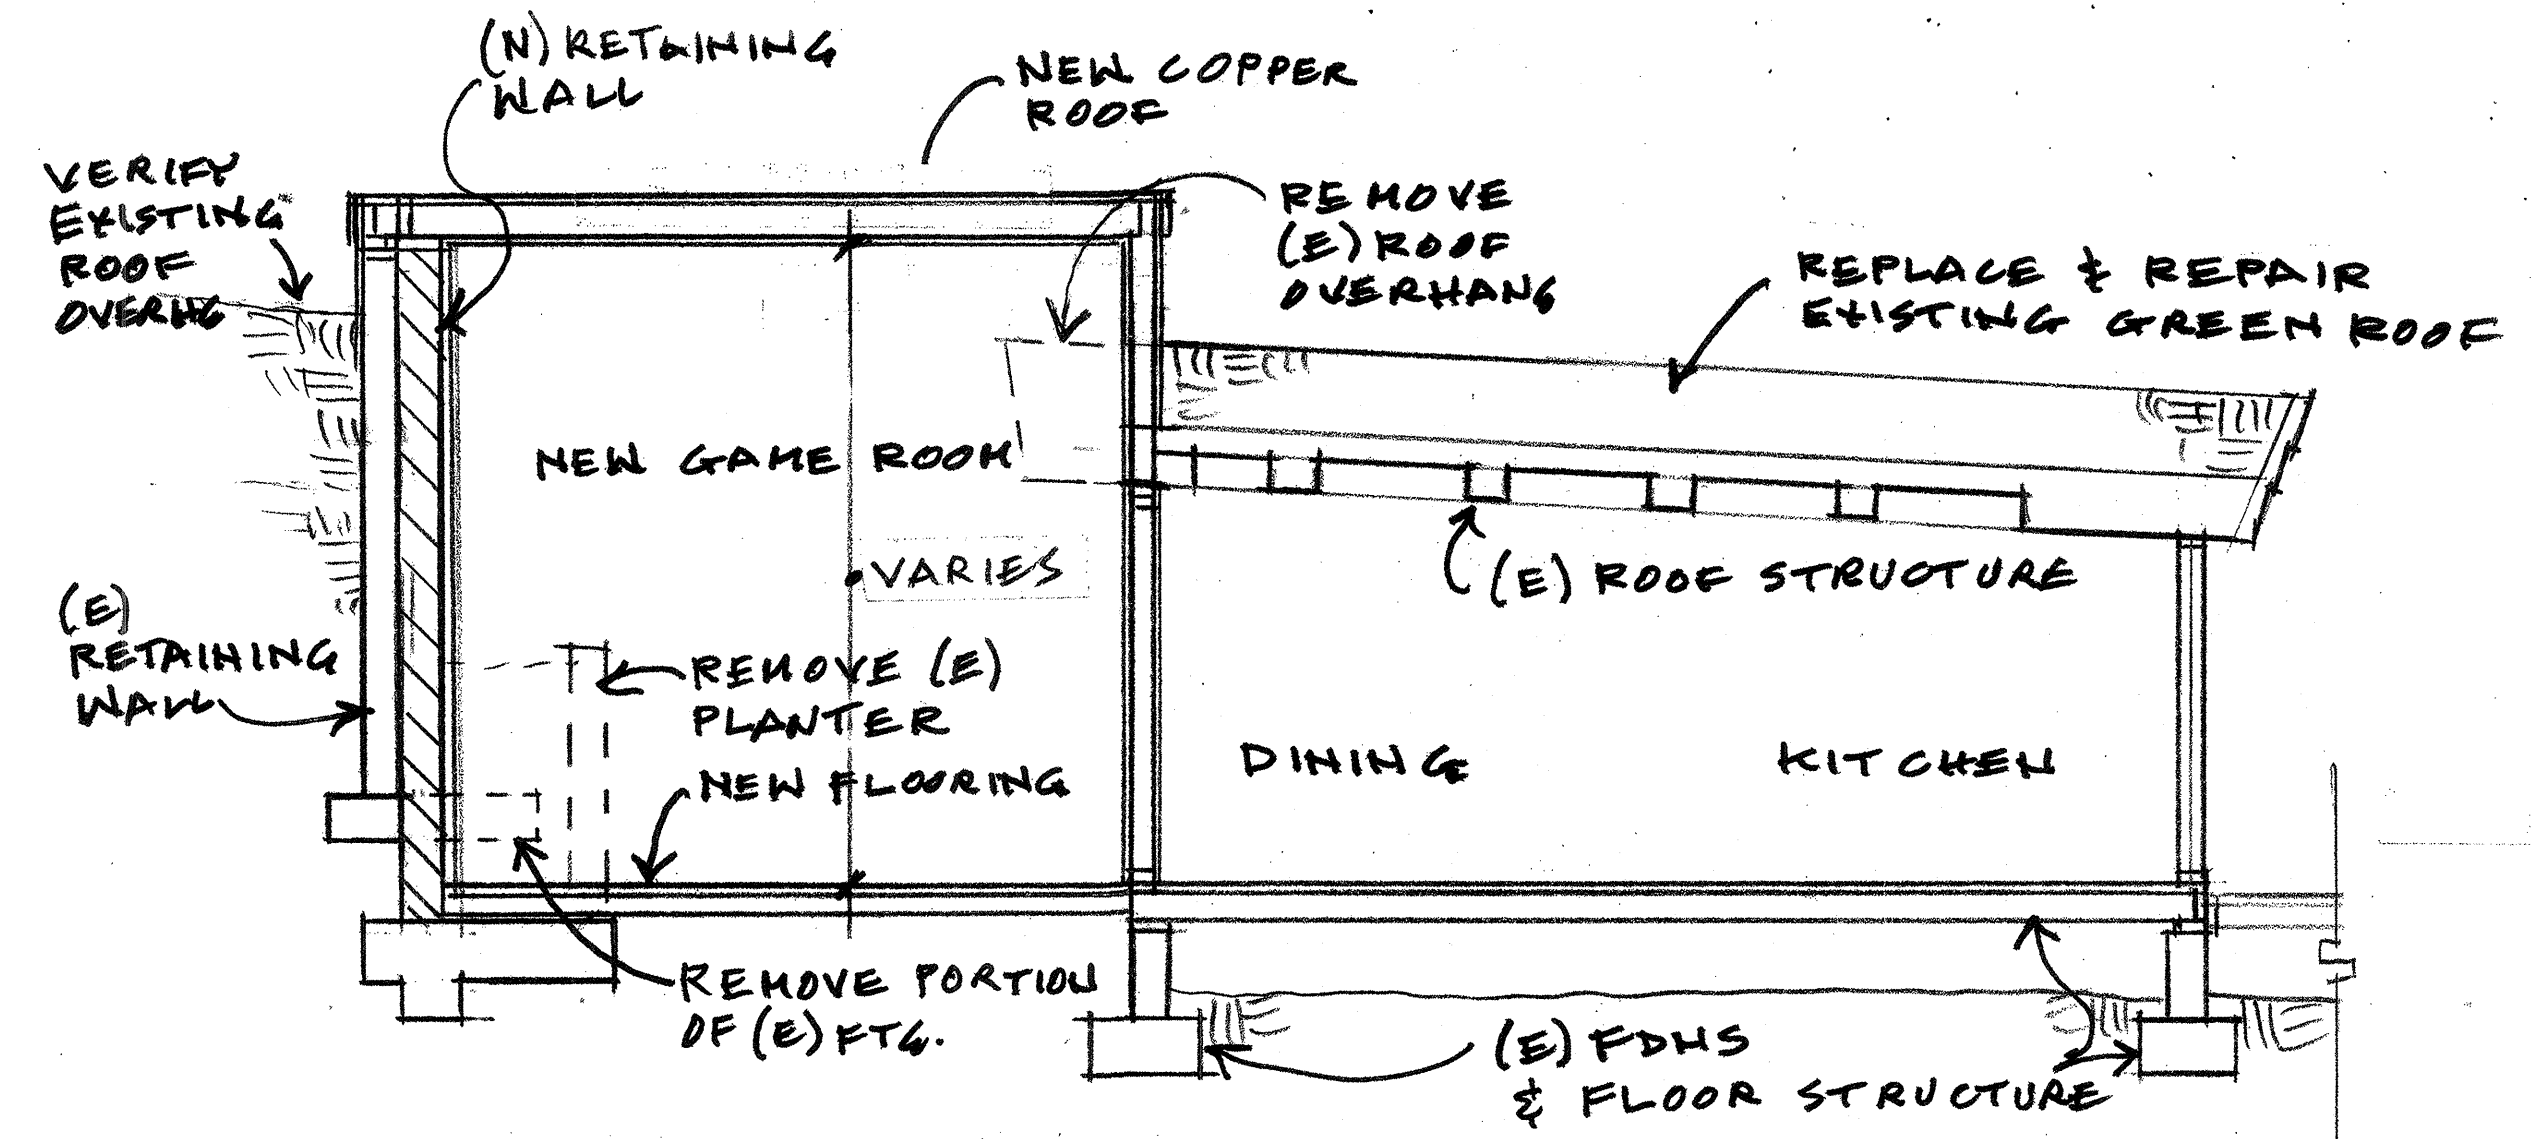 (N) RETAINING
WALL
NEW COPPER
ROOF
VERIFY
EXISTING
ROOF
OVERHG
REMOVE
(E) ROOF
OVERHANG
REPLACE & REPAIR
EXISTING GREEN ROOF
NEW GAME ROOM
VARIES
(E) ROOF STRUCTURE
(E)
RETAINING
WALL
REMOVE (E)
PLANTER
NEW FLOORING
DINING
KITCHEN
REMOVE PORTION
OF (E) FTG.
(E) FDNS
& FLOOR STRUCTURE